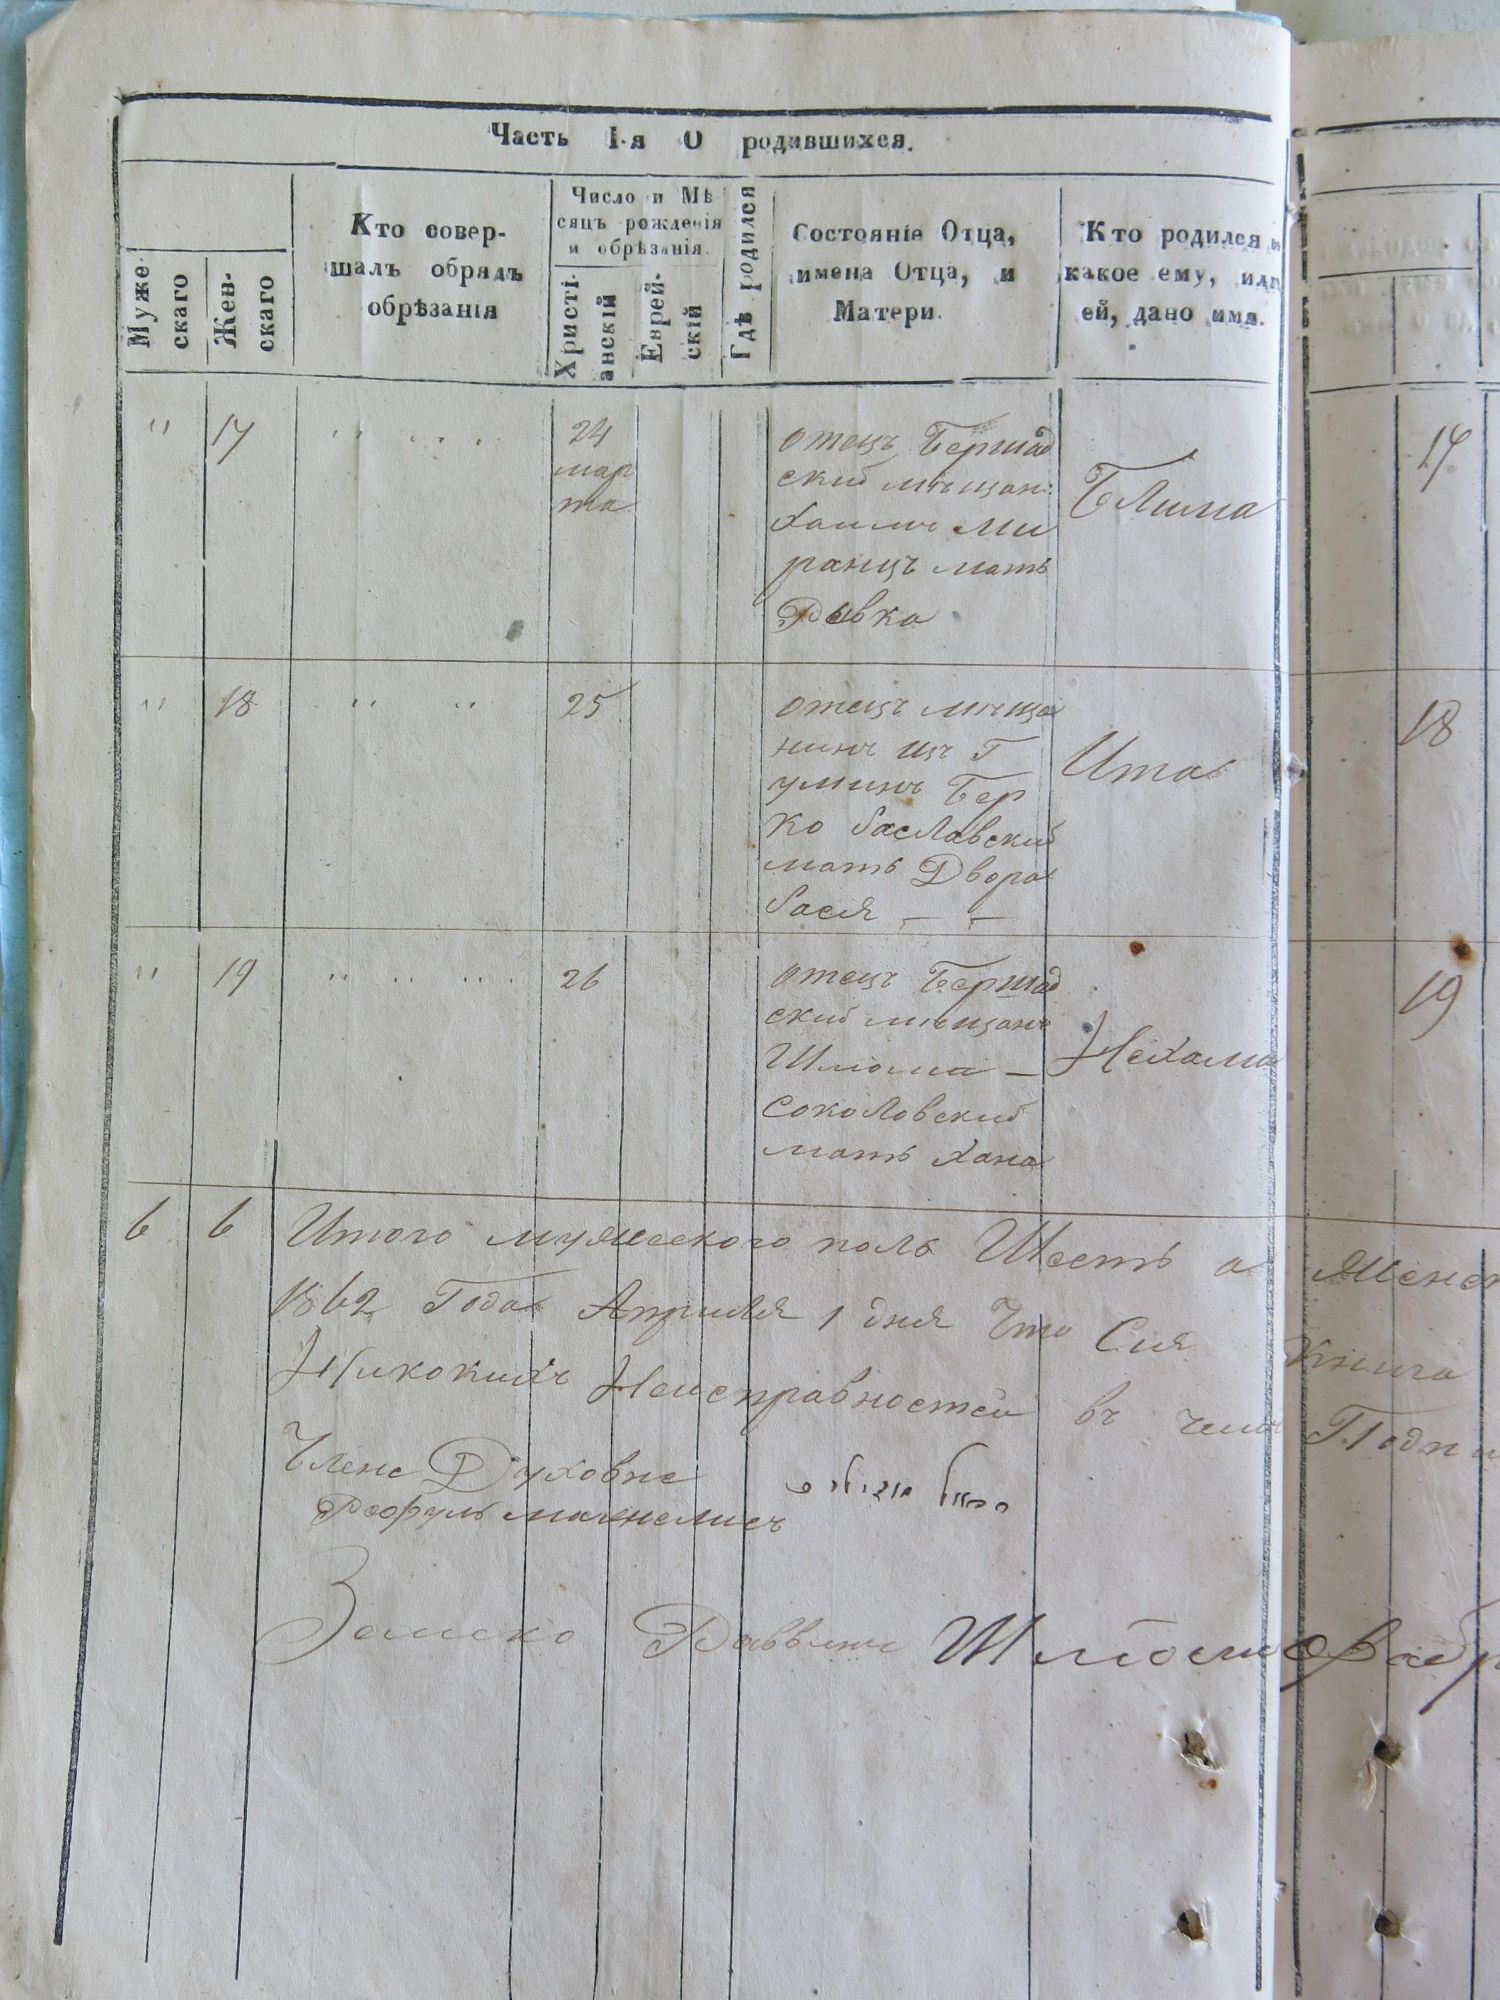 Часть I-я О родившихся.
Муже-
скаго
Жен-
скаго
Кто совер-
шалъ обрядъ
обрѣзанія
Число и Мѣ
сяцъ рожденія
и обрѣзанія.
Христі-
анскій
Еврей-
скій
Гдѣ родился
Состояніе Отца,
имена Отца, и
Матери.
Кто родился и
какое ему, или
ей, дано имя.
" 17 " " 24
мар
та
отецъ Бершад
ский мѣщан:
Хаимъ Ми
ранцъ мать
Рывка
Блима
17
" 18 " " 25
отецъ мѣща
нинъ изъ Г
уминъ Бер
ко баславский
мать Двора
бася — —
Ита
18
" 19 " " 26
отецъ Бершад
ский мѣщанъ
Шлома —
Соколовский
мать Хана
Нехама
19
6 6 Итого мужеского полъ Шесть а женс
1862 Года Апреля 1 дня Что Сия книга
Никокихъ Неисправностей въ чемъ Подпи
Члене Духовне
Замско Раввинъ